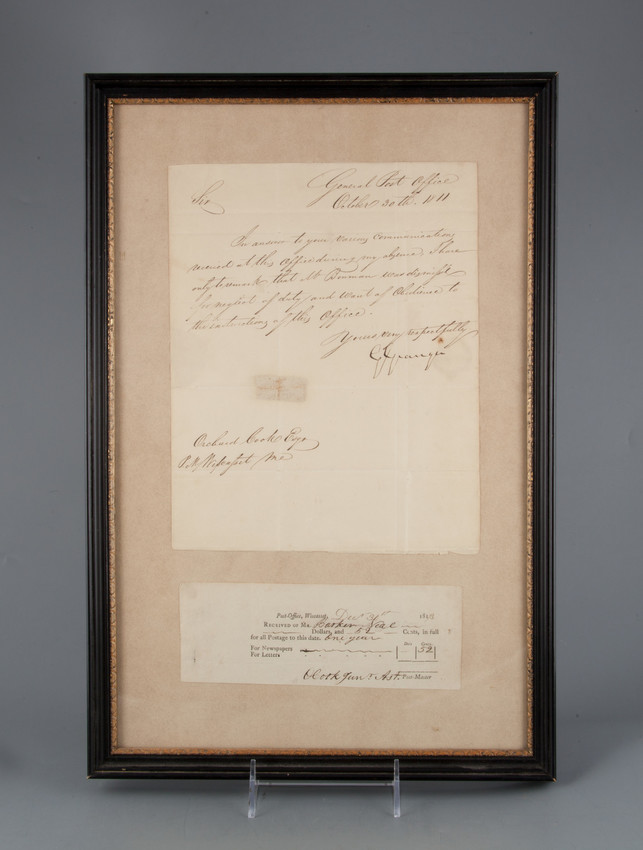 General Post Office
Sir
October 30th. 1811
In answer to your various communications
received at this Office during my absence I have
only to remark that Mr Denman was dismist
for neglect of duty and want of Obedience to
the instructions of this Office.
Yours very respectfully
G Granger
Orchard Cook Esqr
P.M. Wiscasset Me
Post-Office, Wiscasset, Decr 31st 181
Received of Mr.
Dollars, and 52 Cents, in full
for all Postage to this date. one year
Dols. Cents.
For Newspapers 52
For Letters
O Cook Junr Ast. Post-Master